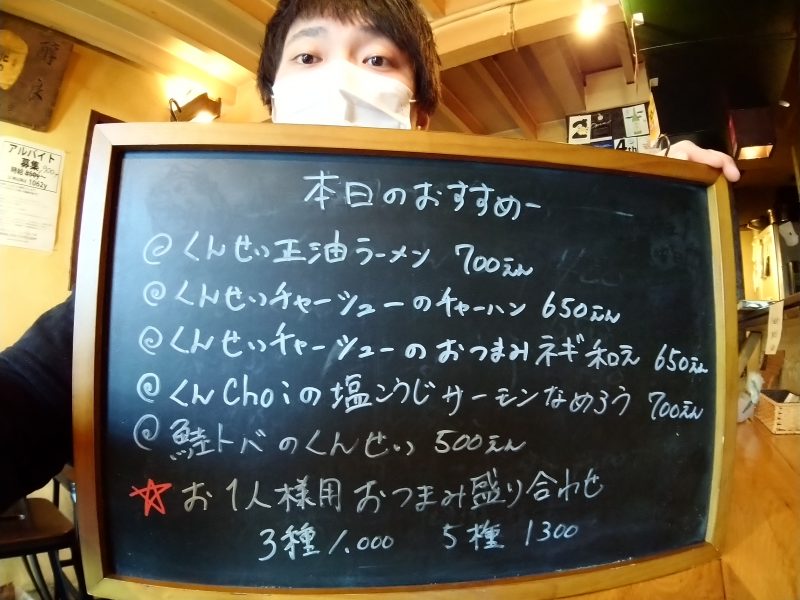 本日のおすすめー
@くんせい正油ラーメン 700えん
@くんせいチャーシューのチャーハン 650えん
@くんせいチャーシューのおつまみネギ和え 650えん
@くんChoiの塩こうじサーモンなめろう 700えん
@鮭トバのくんせい 500えん
☆お1人様用おつまみ盛り合わせ
3種1.000 5種1300
アルバイト
募集